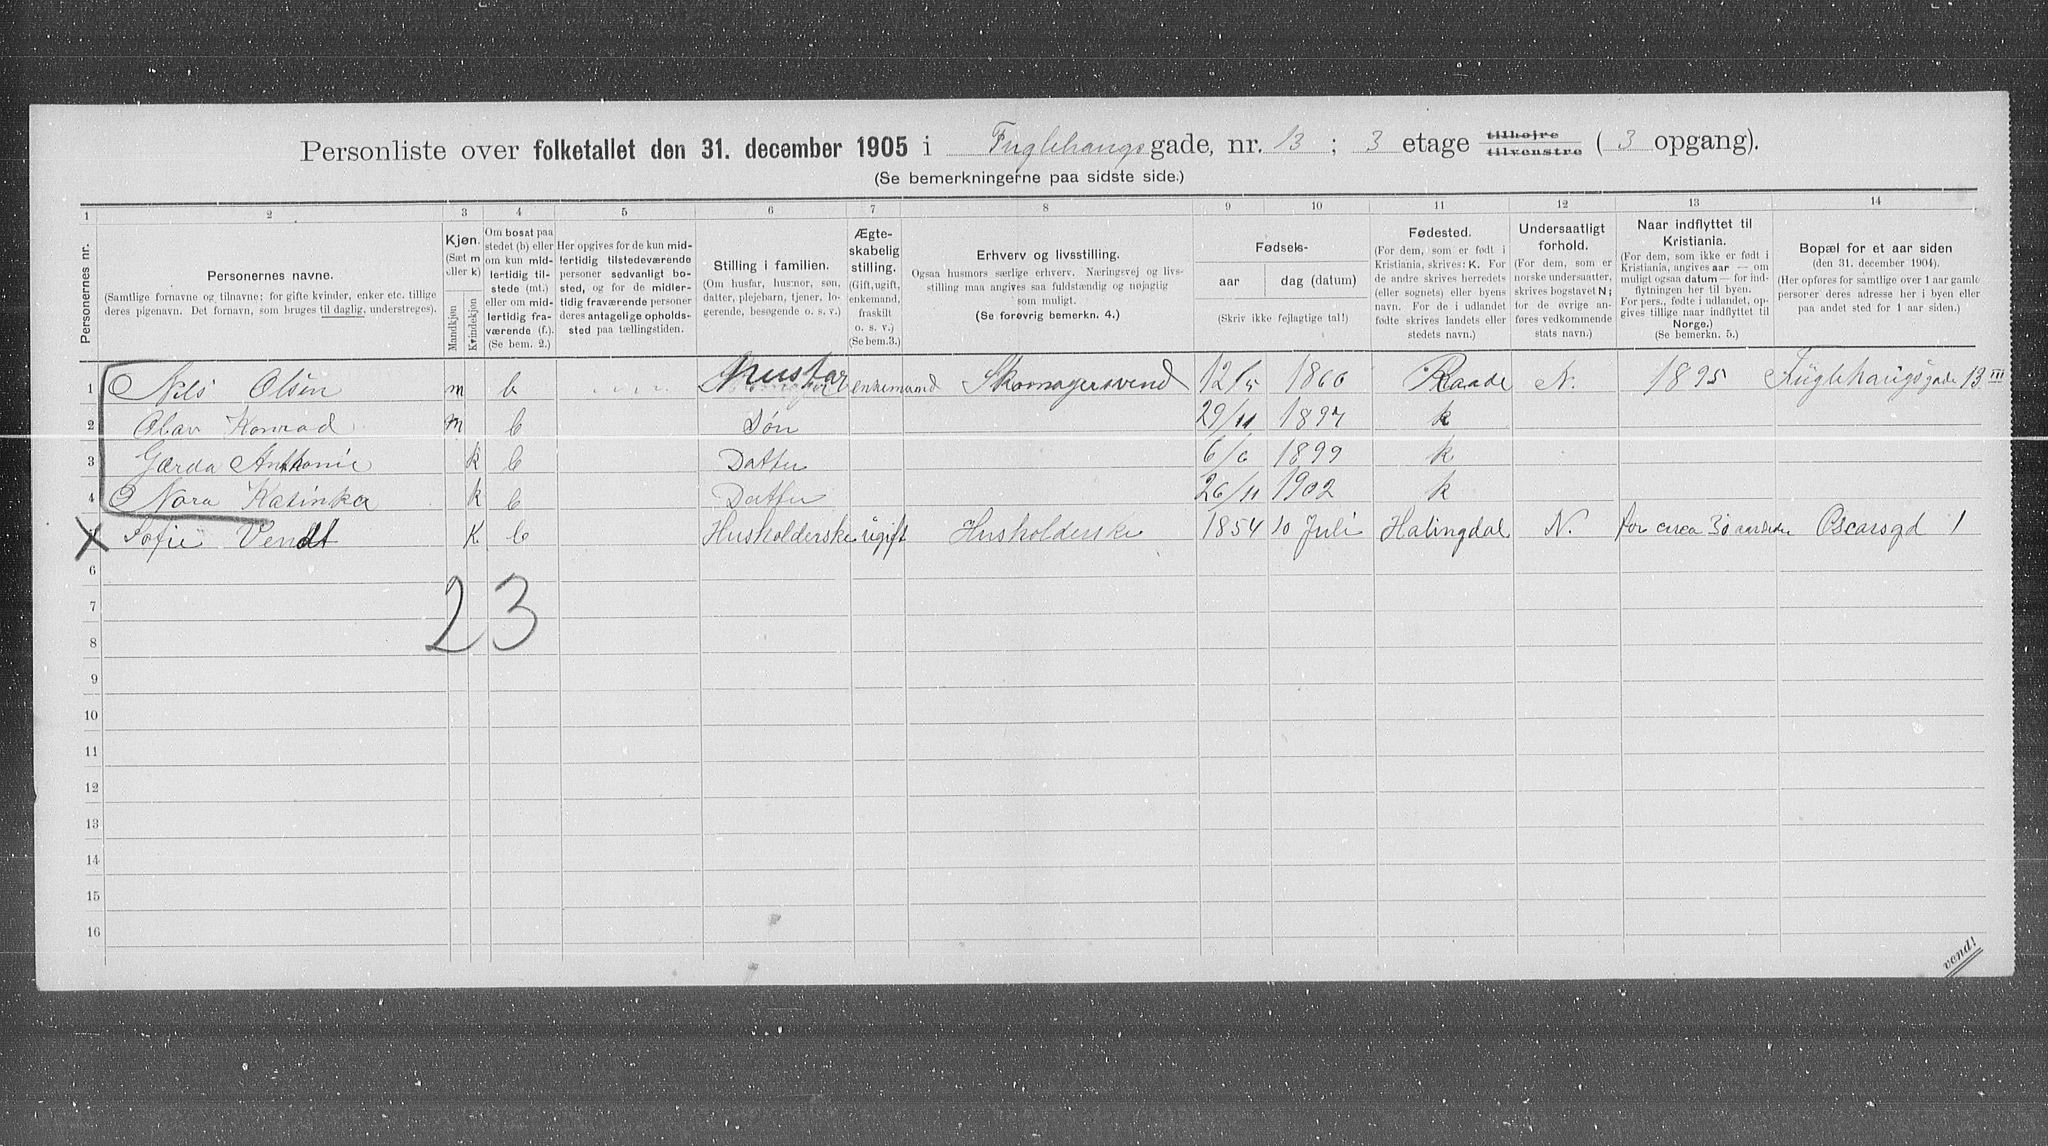 Personliste over folketallet den 31. december 1905 i Fuglehaugsgade, nr. 13 ; 3 etage tilhøjre tilvenstre ( 3 opgang).
(Se bemerkningerne paa sidste side.)
1 2 3 4 5 6 7 8 9 10 11 12 13 14
Personernes nr.
Personernes navne.
(Samtlige fornavne og tilnavne; for gifte kvinder, enker etc. tillige
deres pigenavn. Det fornavn, som bruges til daglig, understreges).
Kjøn.
(Sæt m
eller k)
Mandkjøn
Kvindekjøn
Om bosat paa
stedet (b) eller
om kun mid-
lertidig til-
stede (mt.)
eller om mid-
lertidig fra-
værende (f.).
(Se bem. 2.)
Her opgives for de kun mid-
lertidig tilstedeværende
personer sedvanligt bo-
sted, og for de midler-
tidig fraværende personer
deres antagelige opholds-
sted paa tællingstiden.
Stilling i familien.
(Om husfar, husmor, søn,
datter, plejebarn, tjener, lo-
gerende, besøgende o. s. v.)
Ægte-
skabelig
stilling.
(Gift, ugift,
enkemand,
fraskilt
o. s. v.)
(Se bem. 3.)
Erhverv og livsstilling.
Ogsaa husmors særlige erhverv. Næringsvej og livs-
stilling maa angives saa fuldstændig og nøjagtig
som muligt.
(Se forøvrig bemerkn. 4.)
Fødsels-
aar
dag (datum)
(Skriv ikke fejlagtige tal!)
Fødested.
(For dem, som er født i
Kristiania, skrives: K. For
de andre skrives herredets
(eller sognets) eller byens
navn. For de i udlandet
fødte skrives landets eller
stedets navn.)
Undersaatligt
forhold.
(For dem, som er
norske undersaatter,
skrives bogstavet N;
for de øvrige an-
føres vedkommende
stats navn.)
Naar indflyttet til
Kristiania.
(For dem, som ikke er født i
Kristiania, angives aar — om
muligt ogsaa datum — for ind-
flytningen her til byen.
For pers., fødte i udlandet, op-
gives tillige naar indflyttet til
Norge.)
(Se bemerkn. 5.)
Bopæl for et aar siden
(den 31. december 1904).
(Her opføres for samtlige over 1 aar gamle
personer deres adresse her i byen eller
paa andet sted for 1 aar siden.)
1 Nils Olsen m b Husfar enkemand Skomagersvend 12/5 1866 Raade N. 1895 Fuglehaugsgade 13 III
2 Olav Konrad m b Søn 29/11 1897 k
3 Gærda Anthonie k b Datter 6/6 1899 k
4 Nora Katinka k b Datter 26/11 1902 k
X Sofie Vendt K b Husholderske ugift Husholderske 1854 10 Juli Halingdal N. for circa 30 aar siden Oscarsgd 1
6
7
8
23
9
10
11
12
13
14
15
16
vend!